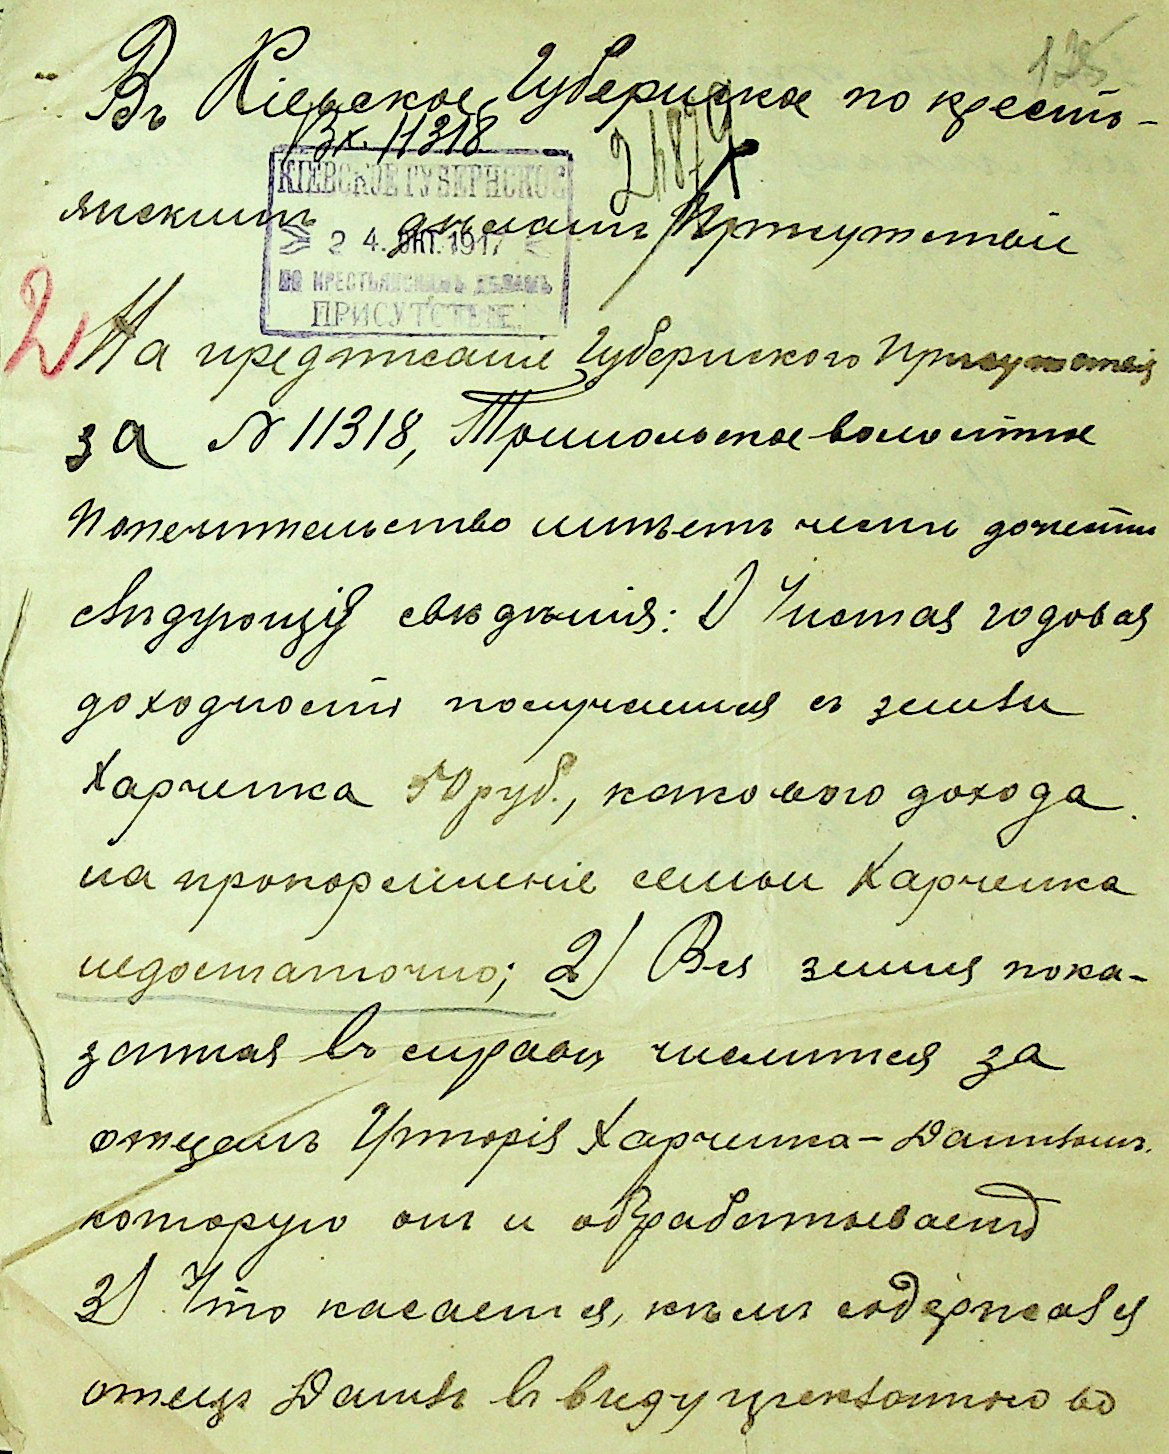 Въ Кіевское Губернское по кресть-
Вх. 11318
янскимъ дѣламъ Присутствіе
КІЕВСКОЕ ГУБЕРНСКОЕ
24. ОКТ. 1917
ПО КРЕСТЬЯНСКИМЪ ДѢЛАМЪ
ПРИСУТСТВІЕ.
2
На предписаніе Губернскаго Присутствія
за № 11318, Трипольское волостное
Попечительство имѣетъ честь донести
слѣдующія свѣдѣнія: 1) Чистая годовая
доходность получаемая съ земли
Харченка 50 руб., какового дохода
на прокормленіе семьи Харченка
недостаточно; 2) Вся земля пока-
занная въ справкѣ числится за
отцемъ Харченка – Даниломъ.
которую онъ и обрабатываетъ
3) Что касается, кѣмъ содержался
отецъ Данилъ въ виду преклоннаго во